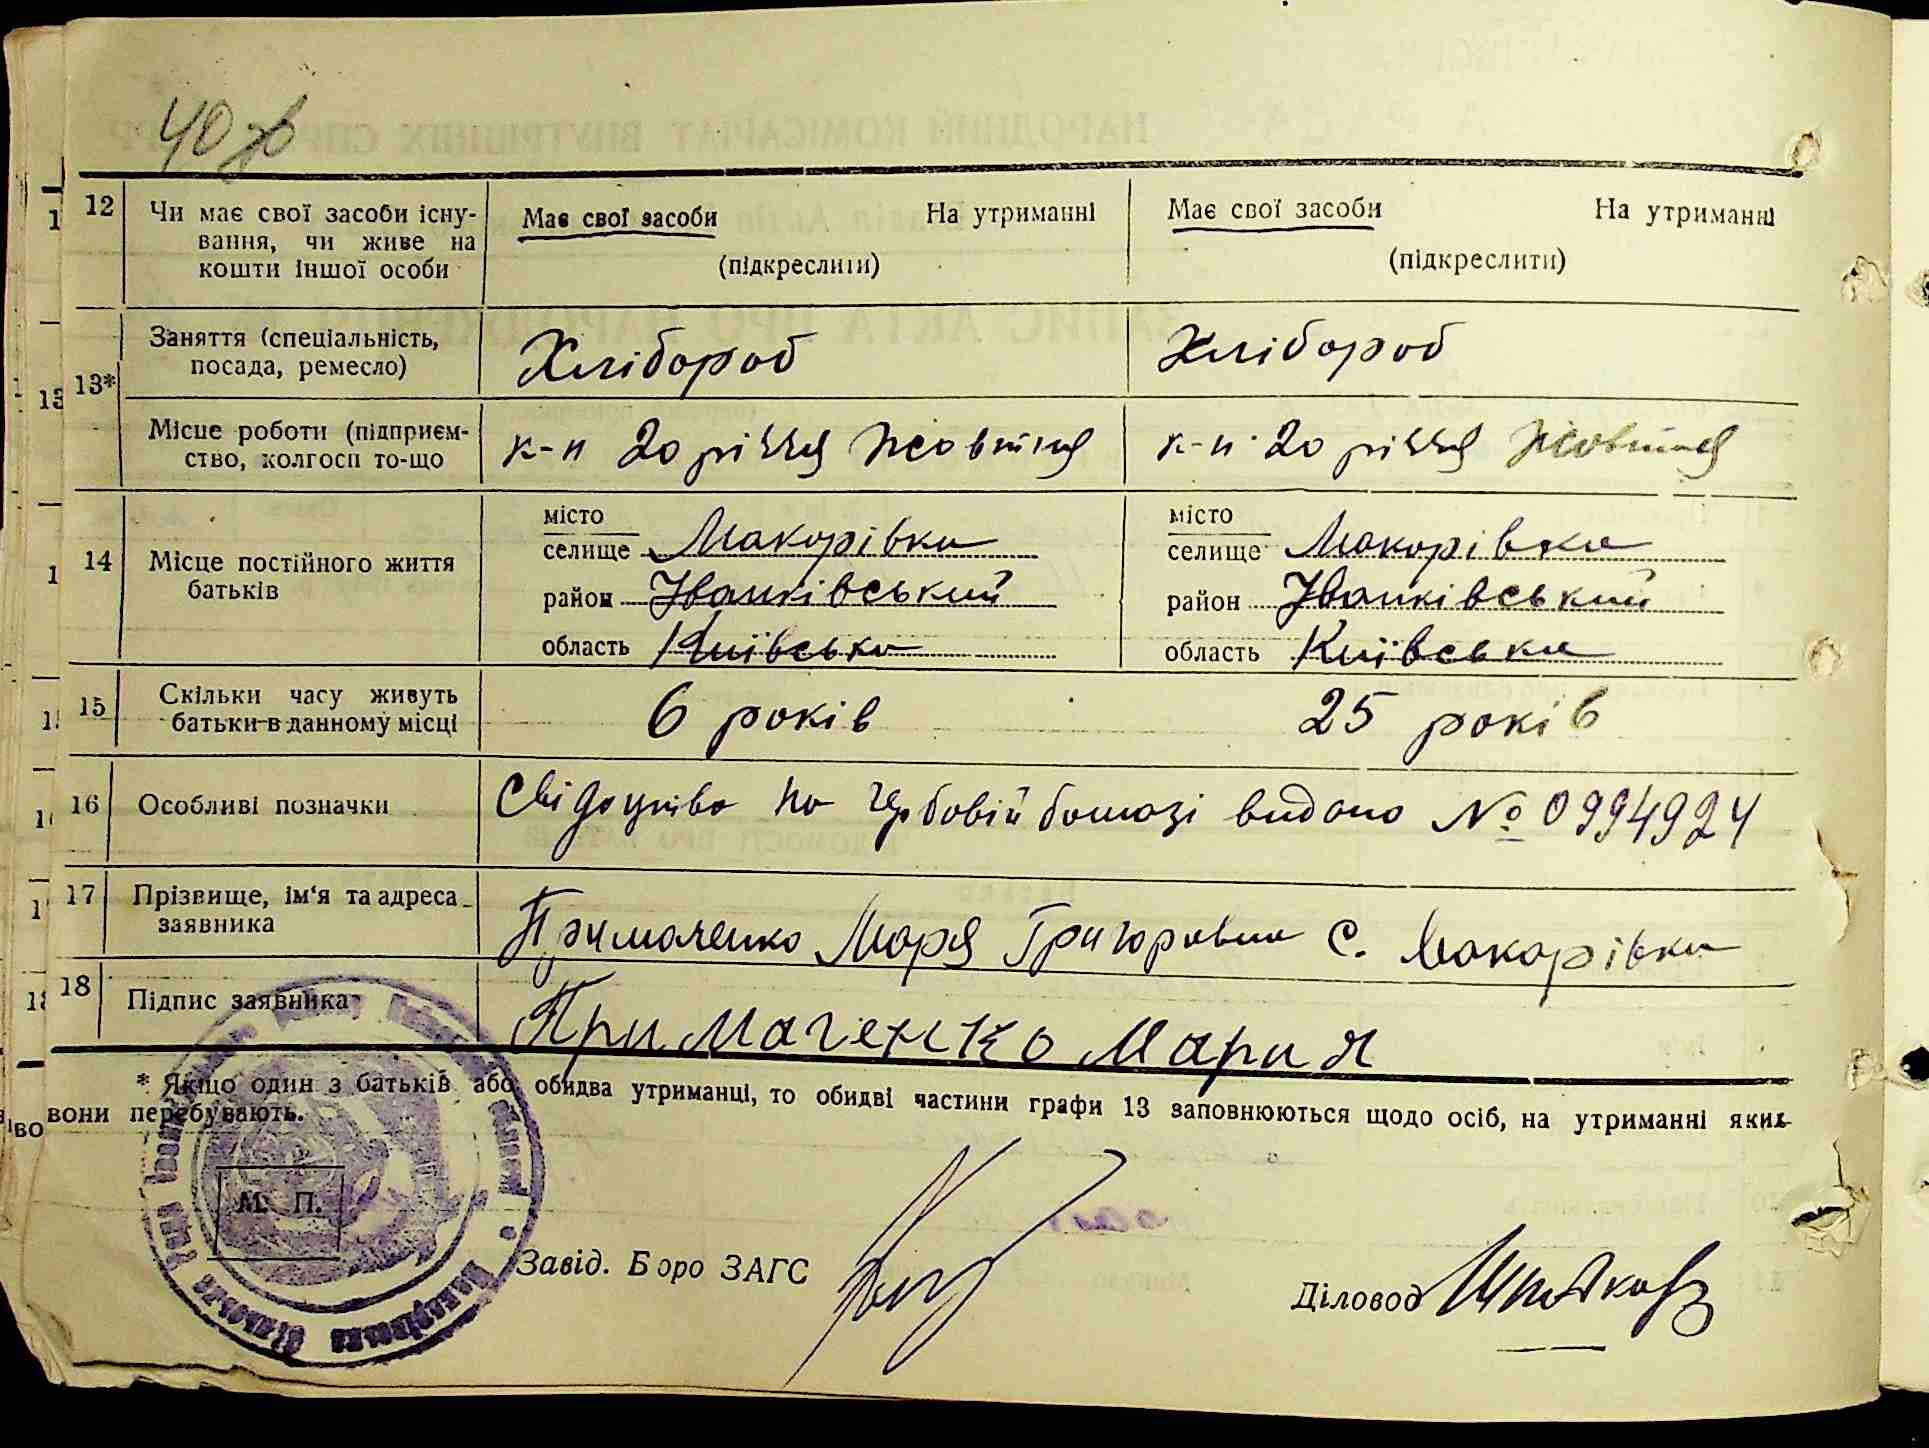 40 зв
12 Чи має свої засоби існу- Має свої засоби На утриманні Має свої засоби На утриманні
вання, чи живе на
кошти іншої особи (підкреслити) (підкреслити)
13* Заняття (спеціальність, Хлібороб Хлібороб
посада, ремесло)
Місце роботи (підприєм- к-п 20 річчя Жовтня к-п 20 річчя Жовтня
ство, колгосп то-що
14 Місце постійного життя місто місто
батьків селище Макарівка селище Макарівка
район Іванківський район Іванківський
область Київська область Київська
15 Скільки часу живуть 6 років 25 років
батьки в данному місці
16 Особливі позначки Свідоцтво по гербовій бомазі видано № 0994924
17 Прізвище, ім'я та адреса Примаченко Марія Григоровна с. Макарівка
заявника
18 Підпис заявника Примаченко Мария
* Якщо один з батьків або обидва утриманці, то обидві частини графи 13 заповнюються щодо осіб, на утриманні яких
вони перебувають.
М. П.
Завід. Бюро ЗАГС
Діловод